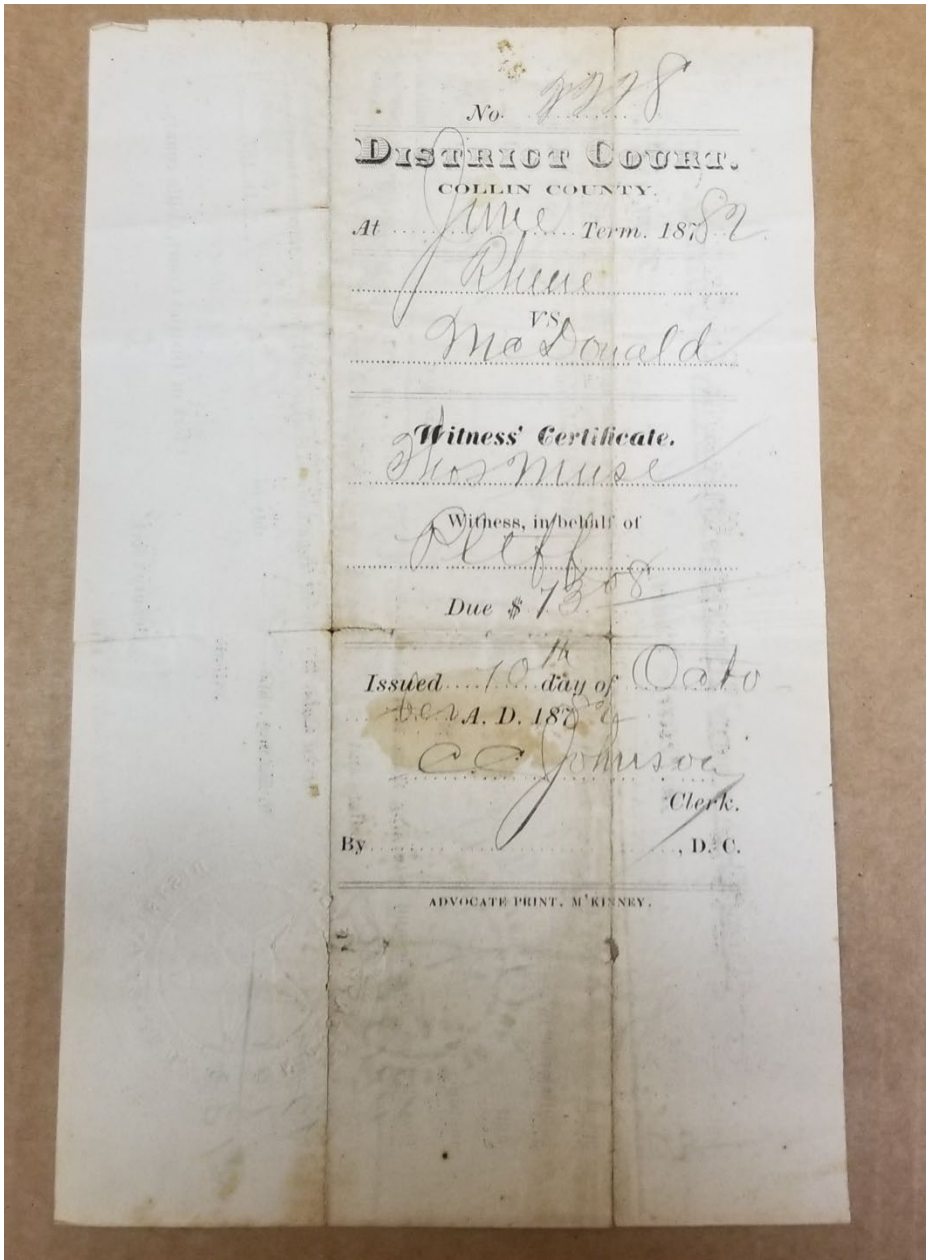 No. 2228
DISTRICT COURT.
COLLIN COUNTY.
At June Term. 18782
Rhine
VS
McDonald
Witness' Certificate.
Thos Muse
Witness, in behalf of
Pltff
Due $ 13 08
Issued 10th day of Octo
ber A. D. 187
C C Johnson
Clerk.
By , D. C.
ADVOCATE PRINT, M'KINNEY.